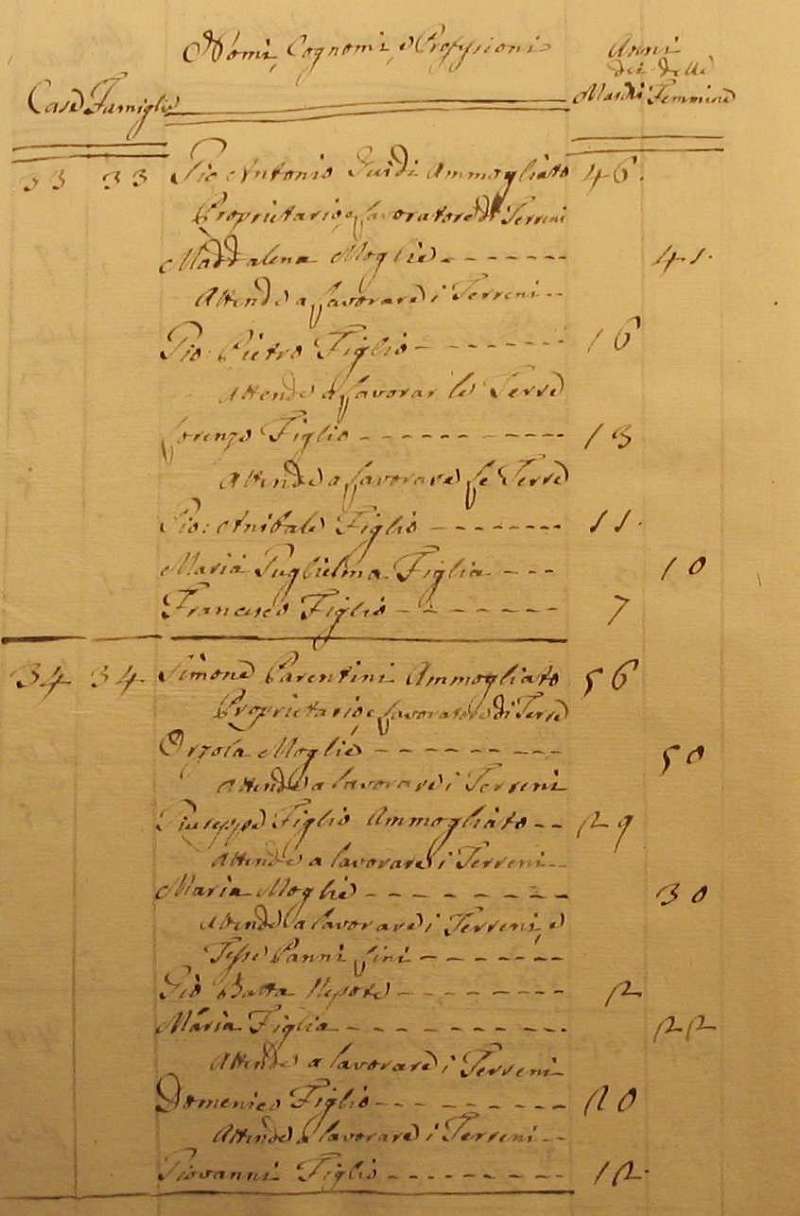 Nomi, Cognomi, e Professioni
Anni
dei delle
Case Famiglie
Maschi Femmine
33 33 Gio Antonio Guidi Ammogliato 46.
Proprietario, e lavoratore di Terreni
Maddalena Moglie 41.
Attende a lavorare i Terreni
Gio: Pietro Figlio 16
Attende a lavorar le Terre
Lorenzo Figlio 13
Attende a lavorare le Terre
Gio: Anibale Figlio 11.
Maria Guglielma Figlia 10
Francesco Figlio 7
34 34. Simone Parentini Ammogliato 56
Proprietario, e lavoratore di Terre
Orzola Moglie 50
Attende a lavorare i Terreni
Giuseppe Figlio Ammogliato 29
Attende a lavorare i Terreni
Maria Moglie 30
Attende a lavorare i Terreni, e
Tesse Panni Lini
Gio Batta Nipote 2
Maria Figlia 22
Attende a lavorare i Terreni
Domenico Figlio 20
Attende a lavorare i Terreni
Giovanni Figlio 12.